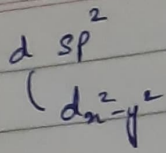 d sp²
( dₓ²-y²